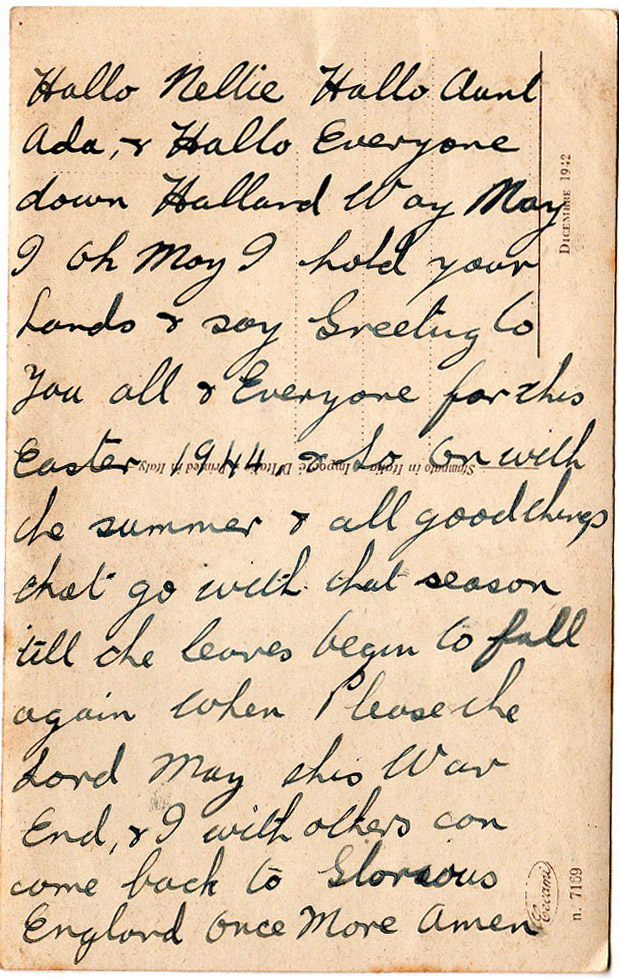 Hallo Nellie Hallo Aunt
Ada, & Hallo Everyone
down Halland Way May
I Oh May I hold your
hands & say Greeting to
You all & Everyone for this
Easter 1944, & So On with
the summer & all good things
that go with that season
'till the leaves begin to fall
again When Please the
Lord May this War
End, & I with others can
come back to Glorious
England Once More Amen
DICEMBRE 1942
Stampato in Italia Printed in Italy
n. 7169